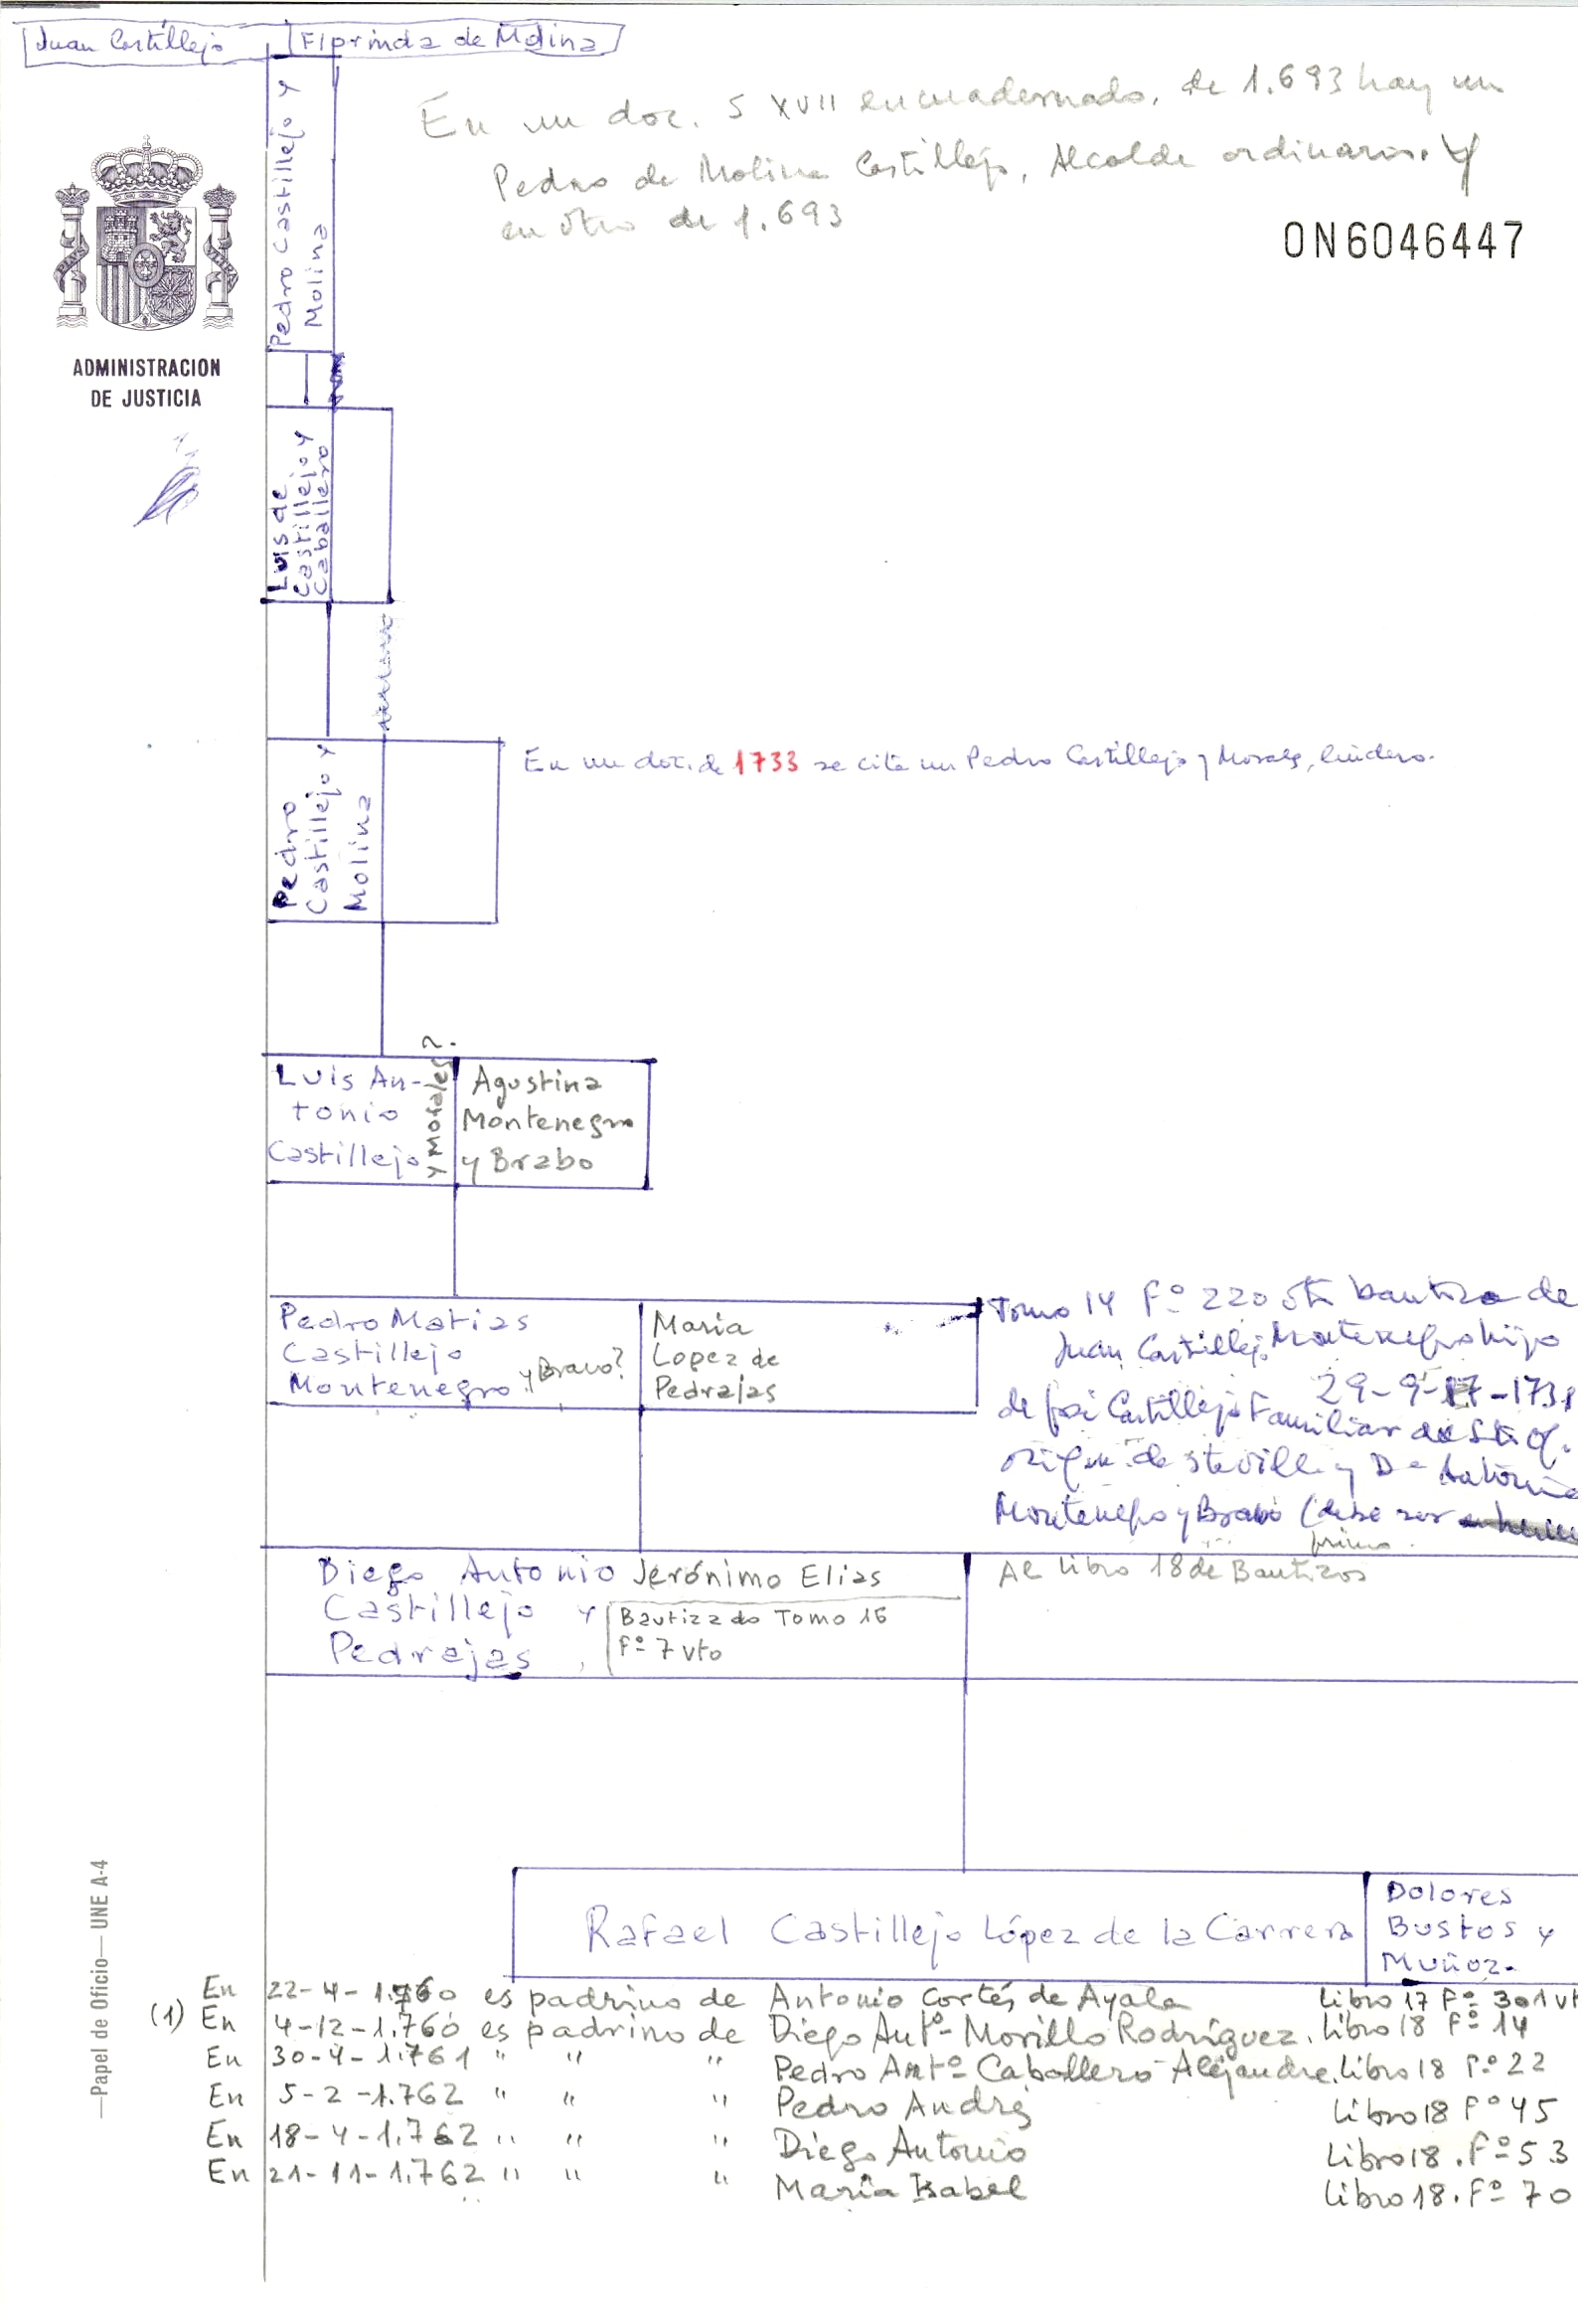 Juan Castillejo Florinda de Molina
Pedro Castillejo y
Molina
En un doc. s XVII encuadernado, de 1.693 hay un
Pedro de Molina Castillejo, Alcalde ordinario. Y
en otro de 1.693
0N6046447
PLVS VLTRA
ADMINISTRACION
DE JUSTICIA
Luis de
Castillejo y
Caballero
Pedro
Castillejo y
Molina
En un doc. de 1733 se cita un Pedro Castillejo y Morales, lindero.
Luis An-
tonio
Castillejo
y Morales?
Agustina
Montenegro
y Brabo
Pedro Matias
Castillejo
Montenegro y Bravo?
Maria
Lopez de
Pedrajas
Tomo 14 Fº 220 está bautizo de
Juan Castillejo Montenegro hijo
29-9-17-1731
de José Castillejo Familiar del Stº Of.
de Sevilla y Dª Antonia
Montenegro y Bravo (debe ser
primo.
Diego Antonio Jerónimo Elias
Castillejo y
Pedrajas,
Bautizado Tomo 16
Fº 7 vto
Al libro 18 de Bautizos
Rafael Castillejo López de la Carrera
Dolores
Bustos y
Muñoz.
En 22-4-1.760 es padrino de Antonio Cortés de Ayala Libro 17 Fº 301 vt
(1) En 4-12-1.760 es padrino de Diego Antº Morillo Rodríguez. Libro 18 Fº 14
En 30-4-1.761 " " " Pedro Antº Caballero Alejandre. Libro 18 Fº 22
En 5-2-1.762 " " " Pedro Andrés Libro 18 Fº 45
En 18-4-1.762 " " " Diego Antonio Libro 18. Fº 53
En 21-11-1.762 " " " María Isabel Libro 18. Fº 70
—Papel de Oficio— UNE A-4